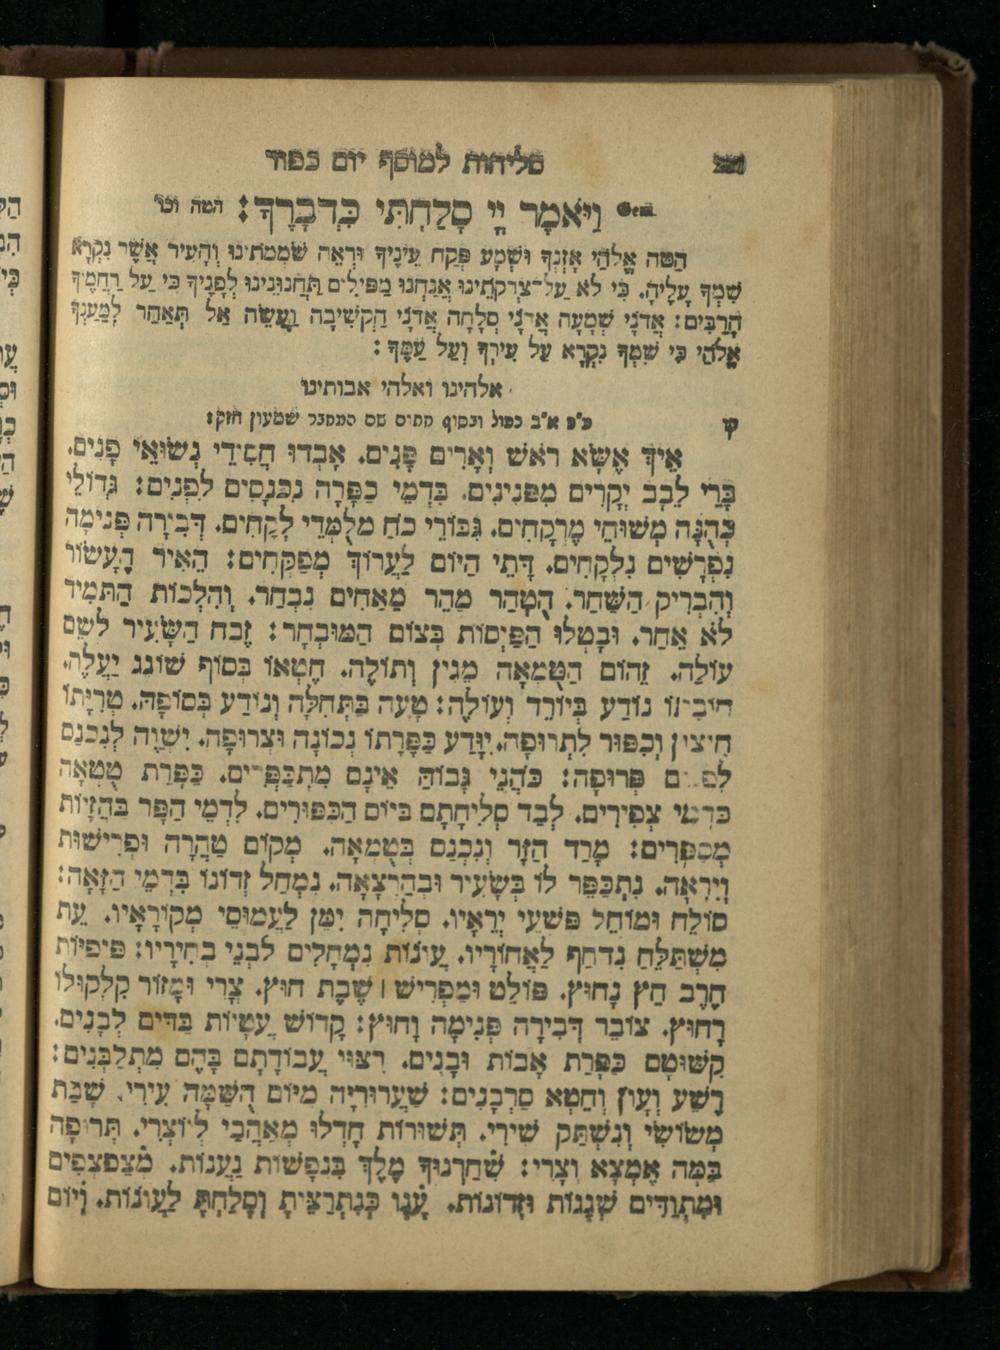 סליחות למוסף יום כפור
Gem. וַיֹּאמֶר יְיָ סָלַחְתִּי כִּדְבָרֶךָ: הטה וכו'
הַטֵּה אֱלֹהַי אָזְנְךָ וּשְׁמָע פְּקַח עֵינֶיךָ וּרְאֵה שֹׁמְמֹתֵינוּ וְהָעִיר אֲשֶׁר נִקְרָא
שִׁמְךָ עָלֶיהָ. כִּי לֹא עַל־צִדְקֹתֵינוּ אֲנַחְנוּ מַפִּילִים תַּחֲנוּנֵינוּ לְפָנֶיךָ כִּי עַל רַחֲמֶיךָ
הָרַבִּים: אֲדֹנָי שְׁמָעָה אֲדֹנָי סְלָחָה אֲדֹנָי הַקְשִׁיבָה וַעֲשֵׂה אַל תְּאַחַר לְמַעַנְךָ
אֱלֹהַי כִּי שִׁמְךָ נִקְרָא עַל עִירְךָ וְעַל עַמֶּךָ:
אלהינו ואלהי אבותינו
ק ע"פ א"ב כפול ובסוף חתים שם המחבר שמעון חזק:
אֵיךְ אֶשָּׂא רֹאשׁ וְאָרִים פָּנִים. אָבְדוּ חֲסִידֵי נְשׂוּאֵי פָנִים.
בָּרֵי לֵבָב יְקָרִים מִפְּנִינִים. בִּדְמֵי כַפָּרָה נִכְנָסִים לִפְנִים: גְּדוֹלֵי
כְהֻנָּה מְשׁוּחֵי מֶרְקָחִים. גִּבּוֹרֵי כֹחַ מְלֻמְּדֵי לְקָחִים. דְּבִירָה פְּנִימָה
נִפְרָשִׁים נִלְקָחִים. דָּתֵי הַיּוֹם לַעֲרוֹךְ מְפַקְּחִים: הֵאִיר הֶעָשׂוֹר
וְהִבְרִיק הַשַּׁחַר. הֻטְהַר מַהֵר מֵאַחִים נִבְחַר. וְהִלְכוֹת הַתָּמִיד
לֹא אֵחַר. וּבָטְלוּ הַפַּיְסוֹת בְּצוֹם הַמּוּבְחָר: זֶבַח הַשָּׂעִיר לְשֵׁם
עוֹלָה. זֵהוֹם הַטֻּמְאָה מֵגִין וְתוֹלֶה. חֶטְאוֹ בְּסוֹף שׁוֹגֵג יַעֲלֶה.
נוֹדַע בְּיוֹרֵד וְעוֹלֶה: טָעָה בַּתְּחִלָּה וְנוֹדַע בְּסוֹפָהּ. טְרִיָּתוֹ
חִיצוֹן וְכִפּוּר לִתְרוּפָה. יִוָּדַע כַּפָּרָתוֹ נְכוֹנָה וּצְרוּפָה. יִשְׁוֶה לְנִכְנַס
פְּרוּפָה: כֹּהֲנֵי גָבוֹהַּ אֵינָם מִתְכַּפְּרִים. כַּפָּרַת טֻמְאָה
צְפִירִים. לְבַד סְלִיחָתָם בְּיוֹם הַכִּפּוּרִים. לִדְמֵי הַפָּר בְּהַזָּיוֹת
מְסַפְּרִים: מָרַד הַזָּר וְנִכְנַס בְּטֻמְאָה. מְקוֹם טַהֲרָה וּפְרִישׁוּת
וְיִרְאָה. נִתְכַּפֵּר לוֹ בְּשָׂעִיר וּבְהַרְצָאָה. נִמְחַל זְדוֹנוֹ בִּדְמֵי הַזָּאָה:
סוֹלֵחַ וּמוֹחֵל פִּשְׁעֵי יְרֵאָיו. סְלִיחָה יִמֵּן לַעֲמוּסֵי מְקוֹרָאָיו. עֵת
מִשְׁתַּלֵּחַ נִדְחַף לַאֲחוֹרָיו. עֲוֹנוֹת נִמְחָלִים לִבְנֵי בְחִירָיו: פִּיפִיּוֹת
חֶרֶב חֵץ נָחוּץ. פּוֹלֵט וּמַפְרִישׁ שֶׁכֶת חוּץ. צֳרִי וּמָזוֹר קִלְקוּלוֹ
רָחוּץ. צוֹבֵר דְּבִירָה פְּנִימָה וָחוּץ: קָדוֹשׁ עֲטִיּוֹת בַּדִּים לְבָנִים.
קִשּׁוּטָם כַּפָּרַת אָבוֹת וּבָנִים. רִצּוּי עֲבוֹדָתָם בָּהֶם מִתְלַבְּנִים:
רֶשַׁע וְעָוֹן וְחֵטְא סַרְבָנִים: שַׁעֲרוּרִיָּה מִיּוֹם הֻשַּׁמָּה עִירִי. שָׁבַת
מְשׂוֹשִׂי וְנִשְׁתַּק שִׁירִי. תְּשׁוּרוֹת חָדְלוּ מְאַהֲבַי לְיוֹצְרִי. תְּרוּפָה
בַּמֶּה אֶמְצָא וְצָרִי: שִׁחַרְנוּךָ מֶלֶךְ בִּנְפָשׁוֹת נַעֲנוֹת. מְצַפְצְפִים
וּמִתְוַדִּים שְׁגָגוֹת וּזְדוֹנוֹת. עֲנֵנוּ כְּנִתְרַצֵּיתָ וְסָלַחְתָּ לַעֲוֹנוֹת. וְיוֹם